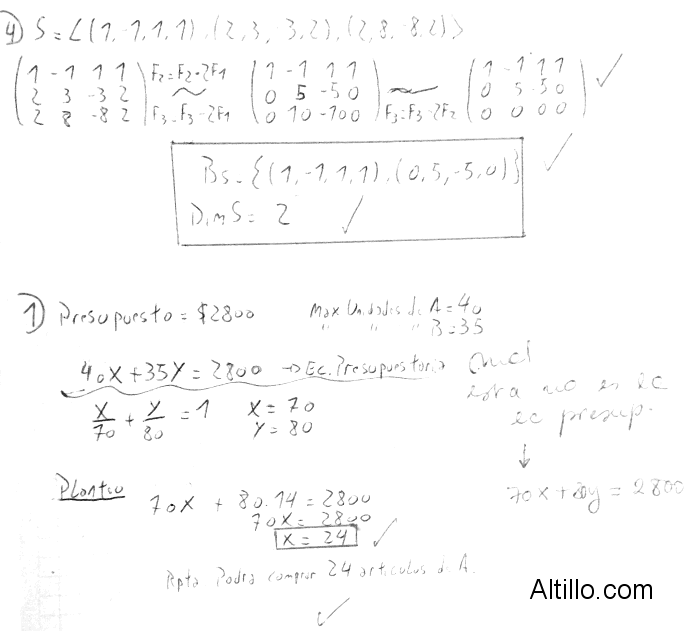 4) S = <(1,-1,1,1),(2,3,-3,2),(2,8,-8,2)>
(1 -1 1 1) F2=F2-2F1 (1 -1 1 1) (1 -1 1 1) ✓
(2 3 -3 2) ~ (0 5 -5 0) ~ (0 5 -5 0)
(2 8 -8 2) F3=F3-2F1 (0 10 -10 0) F3=F3-2F2 (0 0 0 0)
Bs={(1,-1,1,1),(0,5,-5,0)} ✓
Dim S= 2 ✓
1) Presupuesto = $2800 Max Unidades de A=40
" " " B=35
40X+35Y=2800 → Ec. Presupuestaria
X/70 + Y/80 = 1 X=70
Y=80
esta no es la
ec presup.
↓
70x+80y=2800
Planteo
70X + 80.14=2800
70X=2800
X=24 ✓
Rpta Podra comprar 24 articulos de A.
✓
Altillo.com